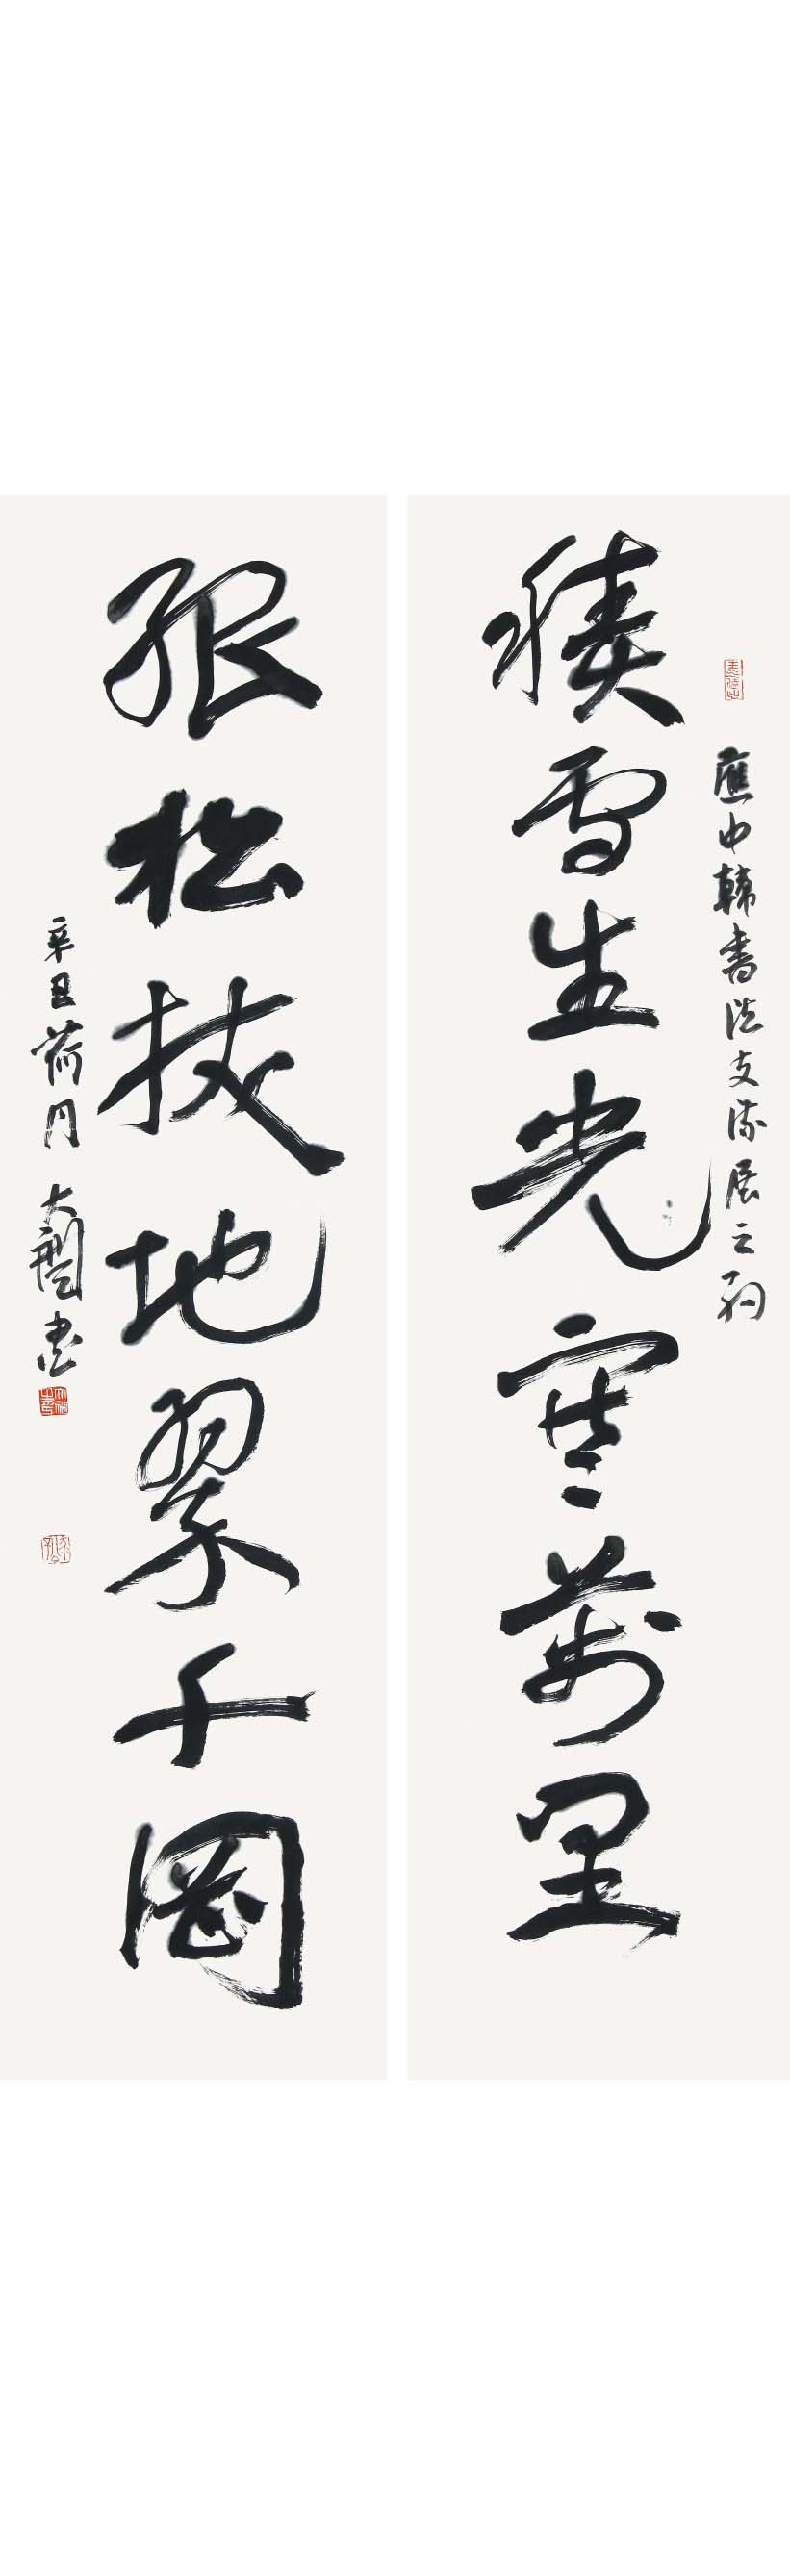 應中韓書法交流展之約
積雪生光寒萬里
孤松拔地翠千岡
辛丑荷月 大闓書